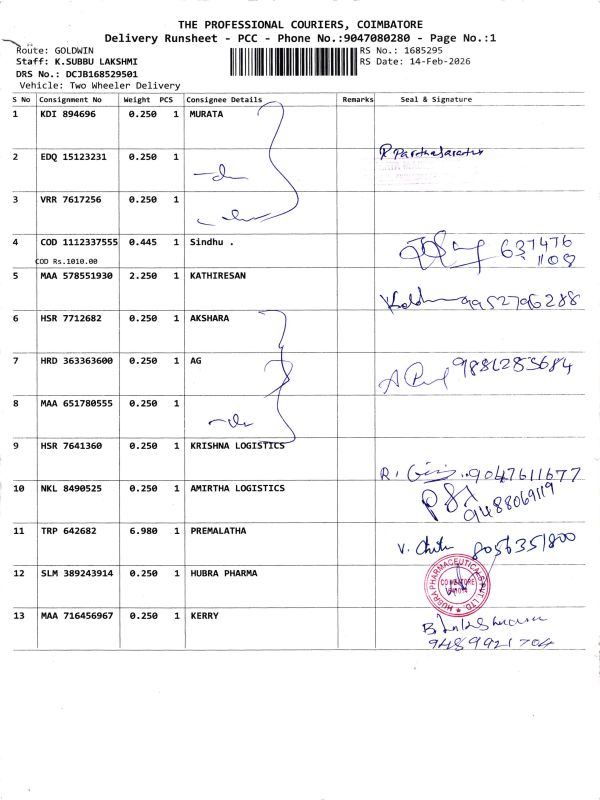 THE PROFESSIONAL COURIERS, COIMBATORE
Delivery Runsheet - PCC - Phone No.:9047080280 - Page No.:1
Route: GOLDWIN
RS No.: 1685295
Staff: K.SUBBU LAKSHMI
RS Date: 14-Feb-2026
DRS No.: DCJB168529501
Vehicle: Two Wheeler Delivery
S No Consignment No Weight PCS Consignee Details Remarks Seal & Signature
1 KDI 894696 0.250 1 MURATA
2 EDQ 15123231 0.250 1
3 VRR 7617256 0.250 1
4 COD 1112337555 0.445 1 Sindhu . 637476
COD Rs.1010.00 1108
5 MAA 578551930 2.250 1 KATHIRESAN
9952796288
6 HSR 7712682 0.250 1 AKSHARA
7 HRD 363363600 0.250 1 AG
8 MAA 651780555 0.250 1
9 HSR 7641360 0.250 1 KRISHNA LOGISTICS
9047611677
10 NKL 8490525 0.250 1 AMIRTHA LOGISTICS
9488069119
11 TRP 642682 6.980 1 PREMALATHA
8056351800
12 SLM 389243914 0.250 1 HUBRA PHARMA
HUBRA PHARMACEUTICALS PVT LTD.
COIMBATORE
13 MAA 716456967 0.250 1 KERRY
9489921704